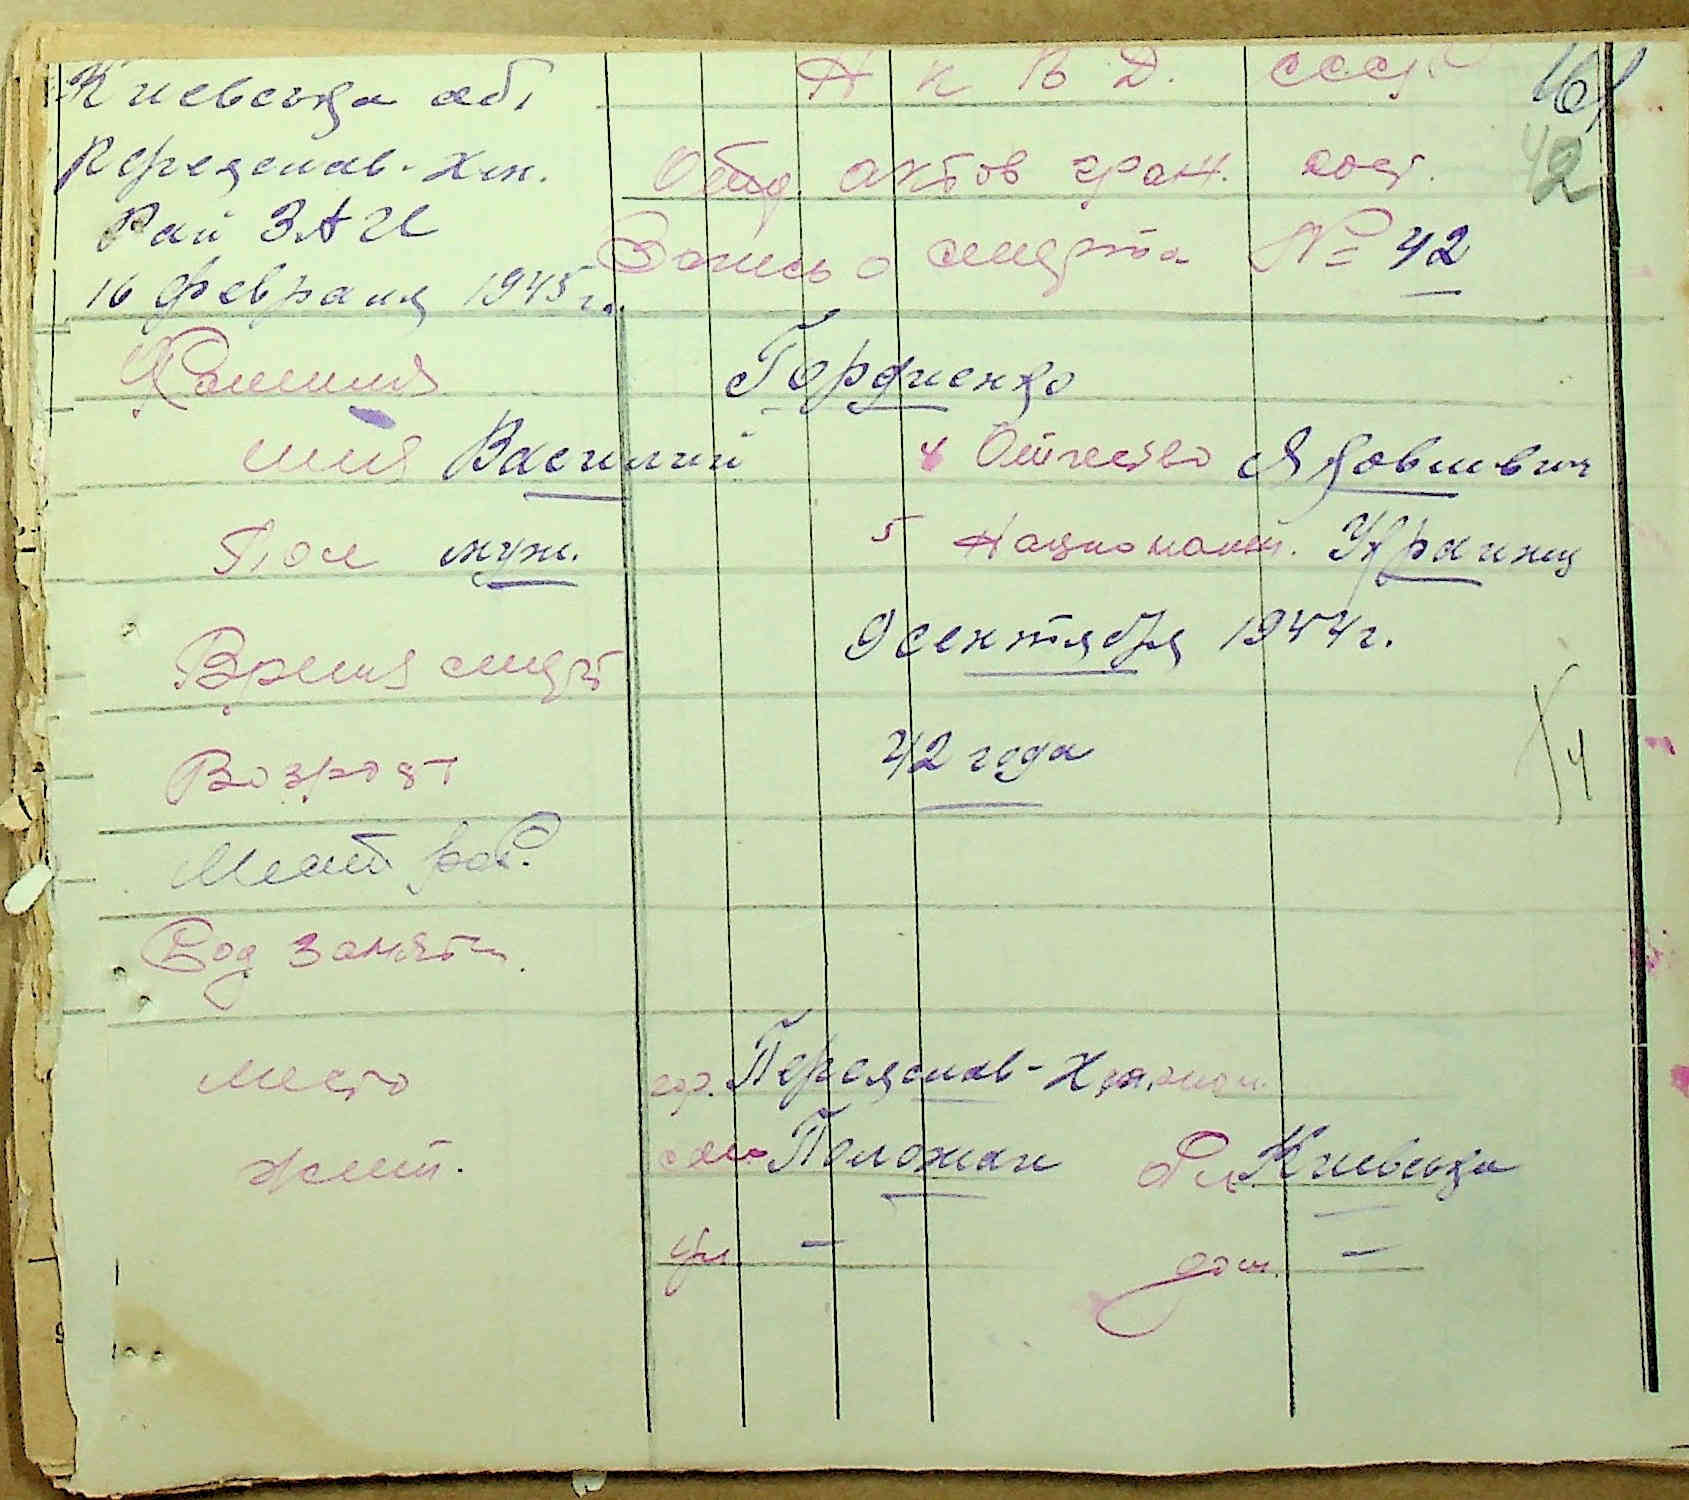 Киевська обл
Переяслав-Хм.
Рай ЗАГС
16 февраля 1945 г.
НКВД. СССР.
161
42
Отд. актов граж. сост.
Запись о смерти № 42
Фамилия Гордиенко
имя Василий 4 Отчество Яковлевич
Пол муж. 5 Националь. Украинец
Время смерт 9 сентября 1944 г.
Возраст 42 года
Мест раб.
Род занят.
место гор. Переяслав-Хмельн.
жит. село Положаи обл Киевська
ул. — дом. —